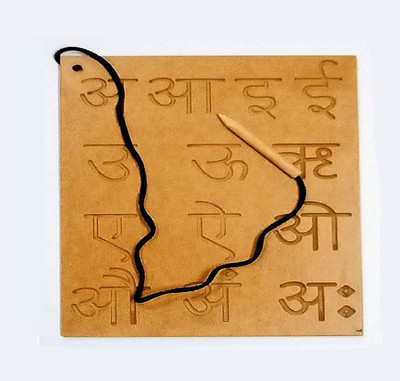 अ आ इ ई
उ ऊ ऋ
ए ऐ ओ
औ अं अः